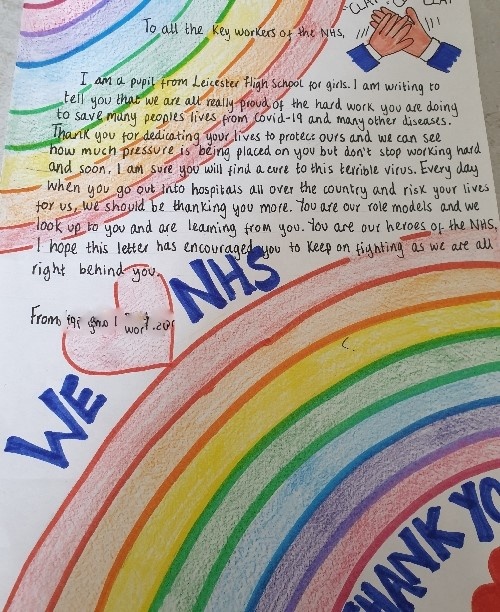 "CLAP! CLAP! CLAP
To all the Key workers of the NHS,
I am a pupil from Leicester High School for girls. I am writing to
tell you that we are all really proud of the hard work you are doing
to save many peoples lives from Covid-19 and many other diseases.
Thank you for dedicating your lives to protect ours and we can see
how much pressure is being placed on you but don't stop working hard
and soon, I am sure you will find a cure to this terrible virus. Every day
when you go out into hospitals all over the country and risk your lives
for us, we should be thanking you more. You are our role models and we
look up to you and are learning from you. You are our heroes of the NHS.
I hope this letter has encouraged you to keep on fighting as we are all
right behind you.
From
WE NHS
THANK YO